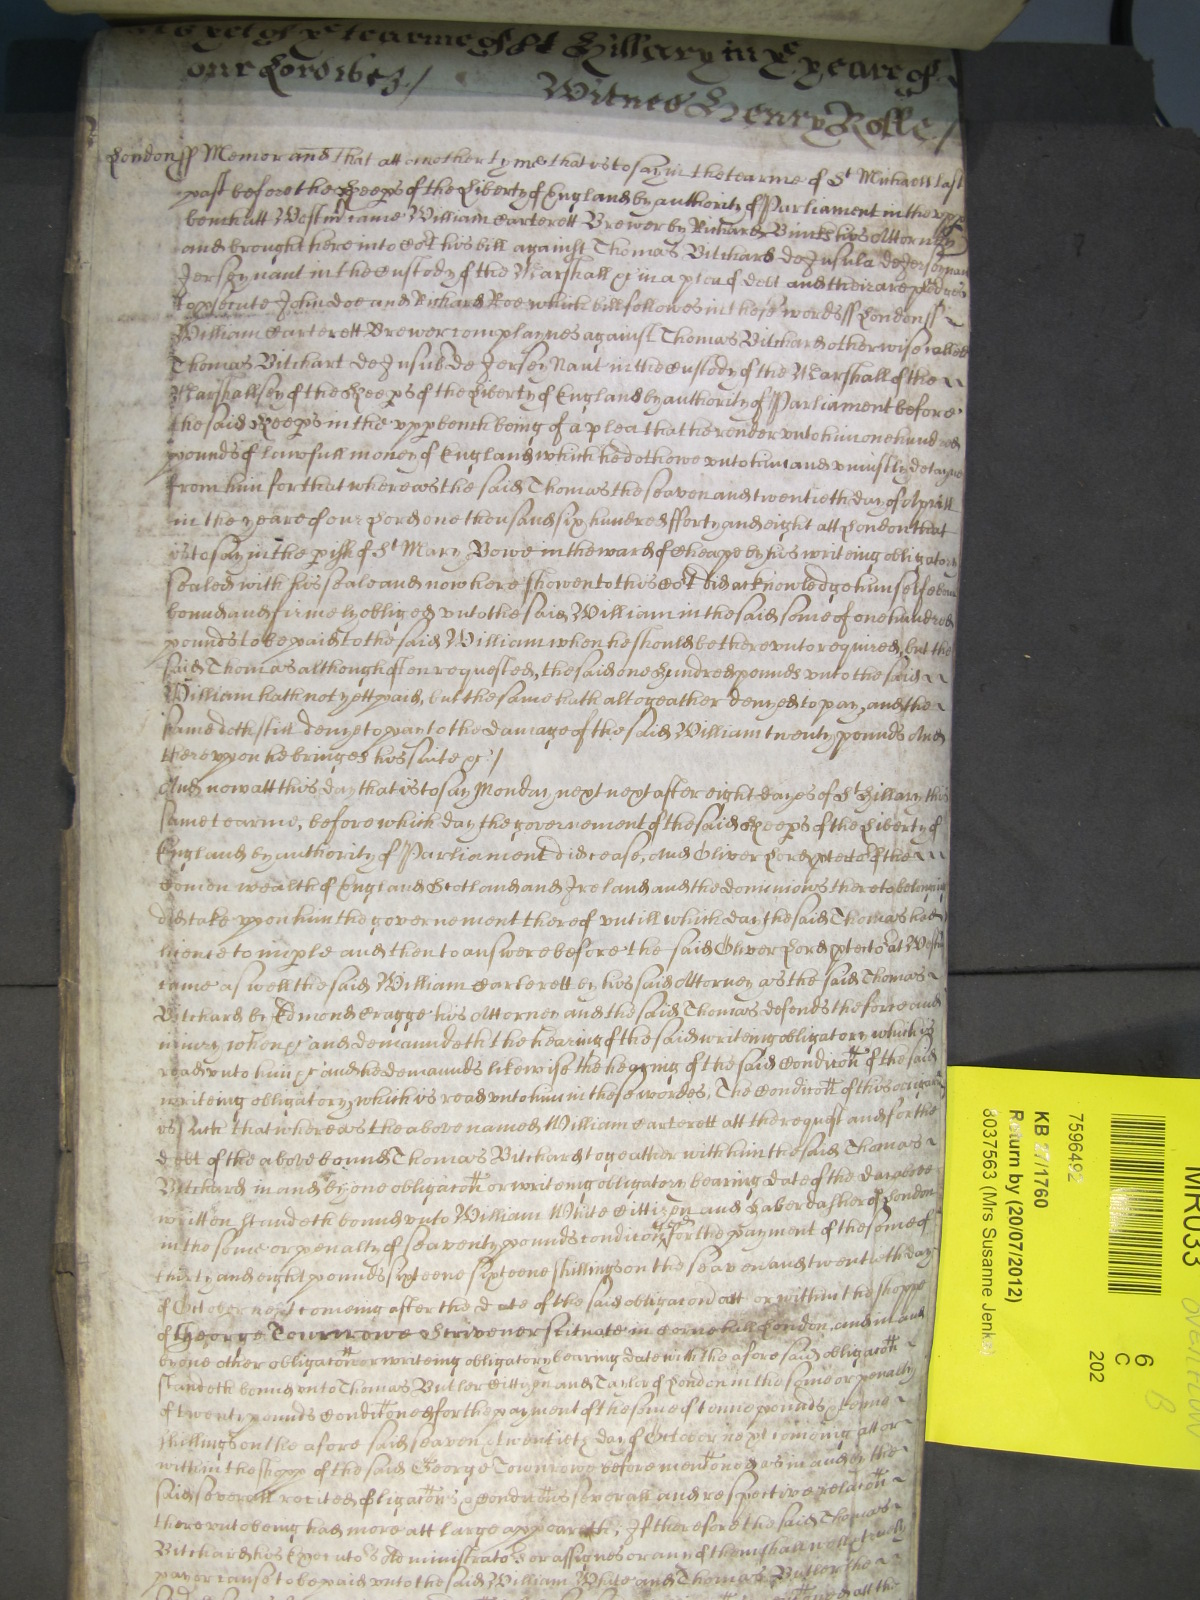 yet of ye tearme of St Hillary in ye yeare of
our Lord 1653 /
Witnes Henry Rolle /
London ss Memorand that att another tyme that is to say in the tearme of St Michaell last
past before the Keeps of the Liberty of England by authority of Parliament in the upp
bench att Westm came William Carterett Brewer by Richard Binks his Attorney
and brought here into Cort his bill against Thomas Bitchard de Insula de Jersey
Jersey naut in the custody of the Marshall &c in a plea of debt and their are pledges
to psecute John Doe and Richard Roe which bill followes in these words ss London ss
William Carterett Brewer complaynes against Thomas Bitchard otherwise called
Thomas Bitchart de Insula de Jersey Naut in the custody of the Marshall of the
Marshallsey of the Keeps of the Liberty of England by authority of Parliament before
the said Keeps in the upp bench being of a plea that he render unto him one hundred
pounds of lawfull money of England which he doth owe unto him and uniustly detayne
from him for that whereas the said Thomas the seaven and twentieth day of Aprill
in the yeare of our Lord one thousand six hundred fforty and eight att London that
is to say in the pish of St Mary Bowe in the ward of Cheape by his writeing obligatory
sealed with his seale and now here shewen to this Cort did acknowledge himselfe
bound and firmely obliged unto the said William in the said some of one hundred
pounds to be paid to the said William when he should be thereunto required, but the
said Thomas although often requested, the said one hundred pounds unto the said
William hath not yett paid, but the same hath altogeather denyed to pay, and the
same doth still deny to pay to the damage of the said William twenty pounds And
thereupon he bringes his suite &c /
And now att this day that is to say Monday next next after eight dayes of St Hillary this
same tearme, before which day the governement of the said Keeps of the Liberty of
England by authority of Parliament did cease, And Oliver Lord ptector of the
Comon wealth of England Scotland and Ireland and the dominions thereto belonging
did take upon him the governement thereof untill which day the said Thomas had
licence to imple and then to answere before the said Oliver Lord ptector at Westm
came as well the said William Carterett by his said Attorney as the said Thomas
Bitchard by Edmond Cragge his Attorney and the said Thomas defends the force and
iniury when &c and demaundeth the hearing of the said writeing obligatory which is
read unto him &c and he demaunds likewise the hearing of the said Condicon of the said
writeing obligatory, which is read unto him in these wordes, The Condicon of this
is such that whereas the above named William Carterett att the request and for the
debt of the above bound Thomas Bitchard togeather with him the said Thomas
Bitchard in and by one obligacon or writeing obligatory bearing date of the daye
written standeth bound unto William White Cittizen and haberdasher of London
in the some or penalty of seaventy pounds condiconed for the payment of the some of
thirty and eight pounds sixteene shillings on the seaven and twentieth day
of October next comeing after the date of the said obligacon att or within the shoppe
of George Townrowe Scrivener scituate in Cornehill London, and in and
by one other obligacon or writeing obligatory bearing date with the aforesaid obligacon
standeth bound unto Thomas Butler Cittizen and Taylor of London in the some or penalty
of twenty pounds Condiconed for the payment of the some of tenne pounds
shillings on the aforesaid seaven & twentieth day of October next comeing att or
within the shopp of the said George Townrowe before menconed as in and by the
said severall recited obligacons & Condicons severall and respective relacon
thereunto being had more att large appeareth, If therefore the said Thomas
Bitchard his Executors Administrators or assignes or any of them shall well & truely
pay or cause to be paid unto the said William White and Thomas Butler the
MR033
6
C
202
7596492
KB 27/1760
Return by (20/07/2012)
8037563 (Mrs Susanne Jenks)